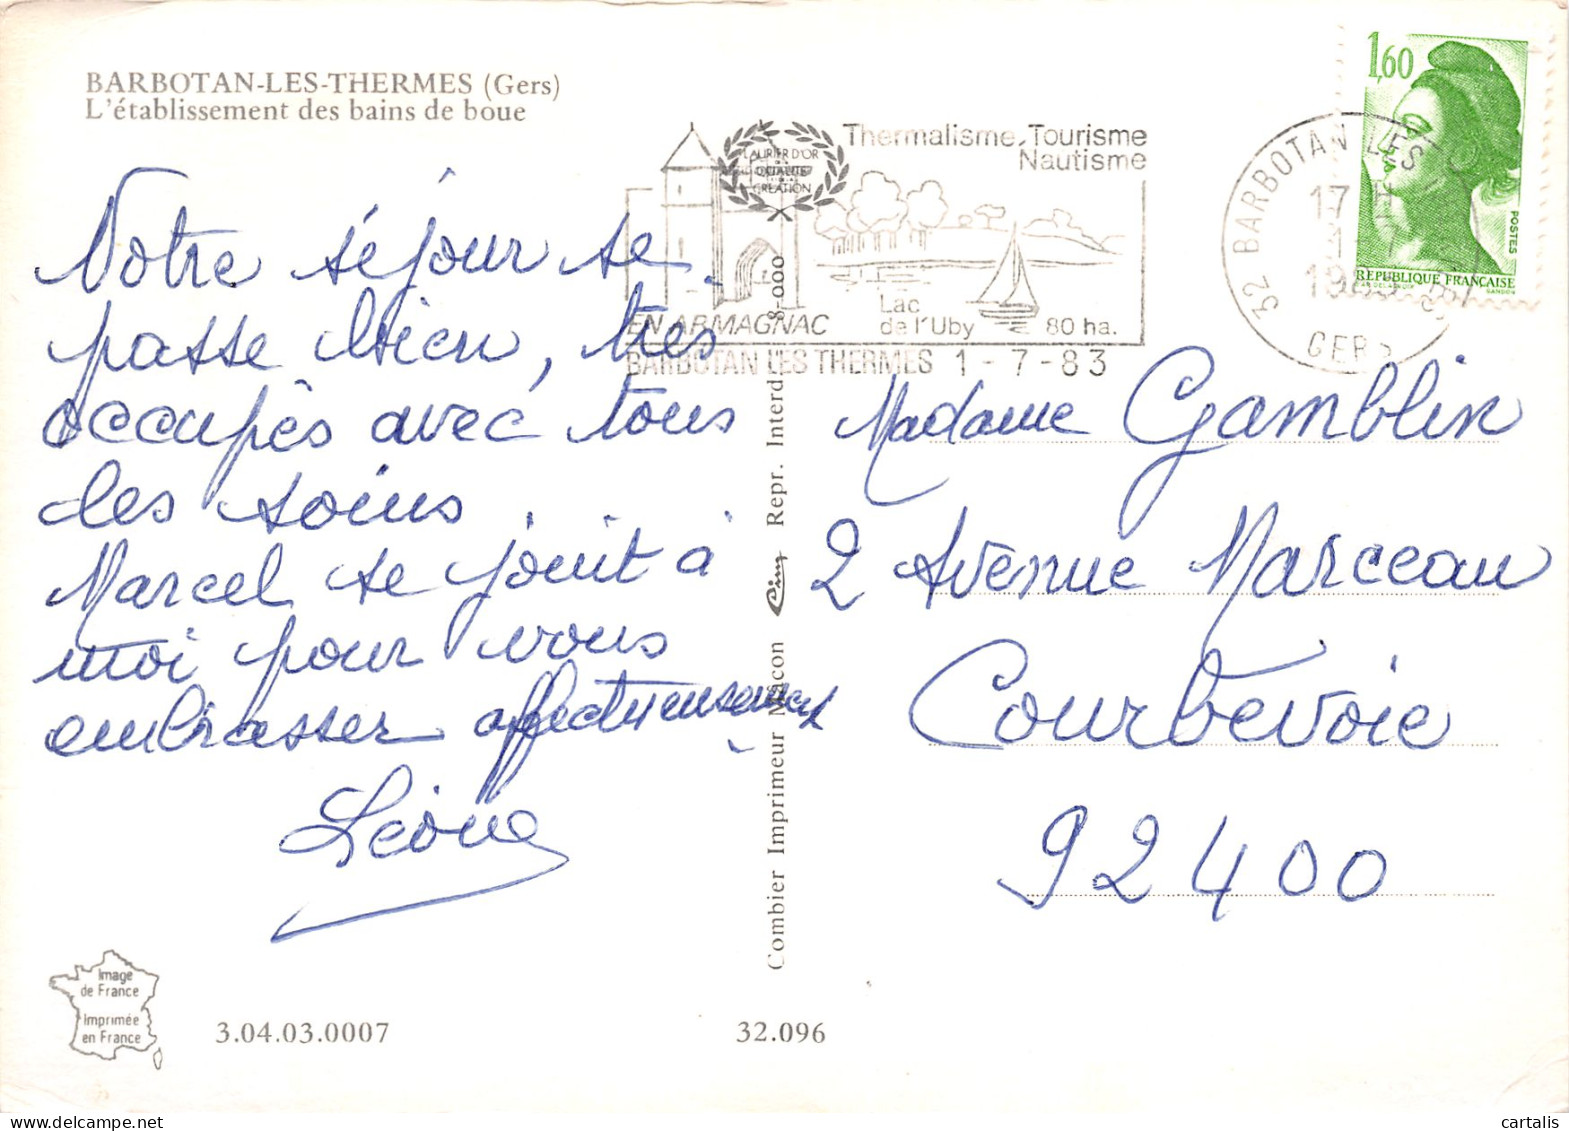 BARBOTAN-LES-THERMES (Gers)
L'établissement des bains de boue
Notre séjour se
passe bien, très
occupés avec tous
les soins
Marcel se joint à
moi pour vous
embrasser affectueusement
Léone
Image
de France
Imprimée
en France
3.04.03.0007
32.096
Combier Imprimeur Mâcon Cim Repr. Interd 8-000
LAURIER D'OR
QUALITE
CREATION
Thermalisme, Tourisme
Nautisme
Lac
de l'Uby
80 ha.
EN ARMAGNAC
BARBOTAN LES THERMES 1-7-83
32 BARBOTAN LES
17 H
GERS
1,60
POSTES
REPUBLIQUE FRANÇAISE
GANDON
Madame Gamblin
2 Avenue Marceau
Courbevoie
92400
cartalis